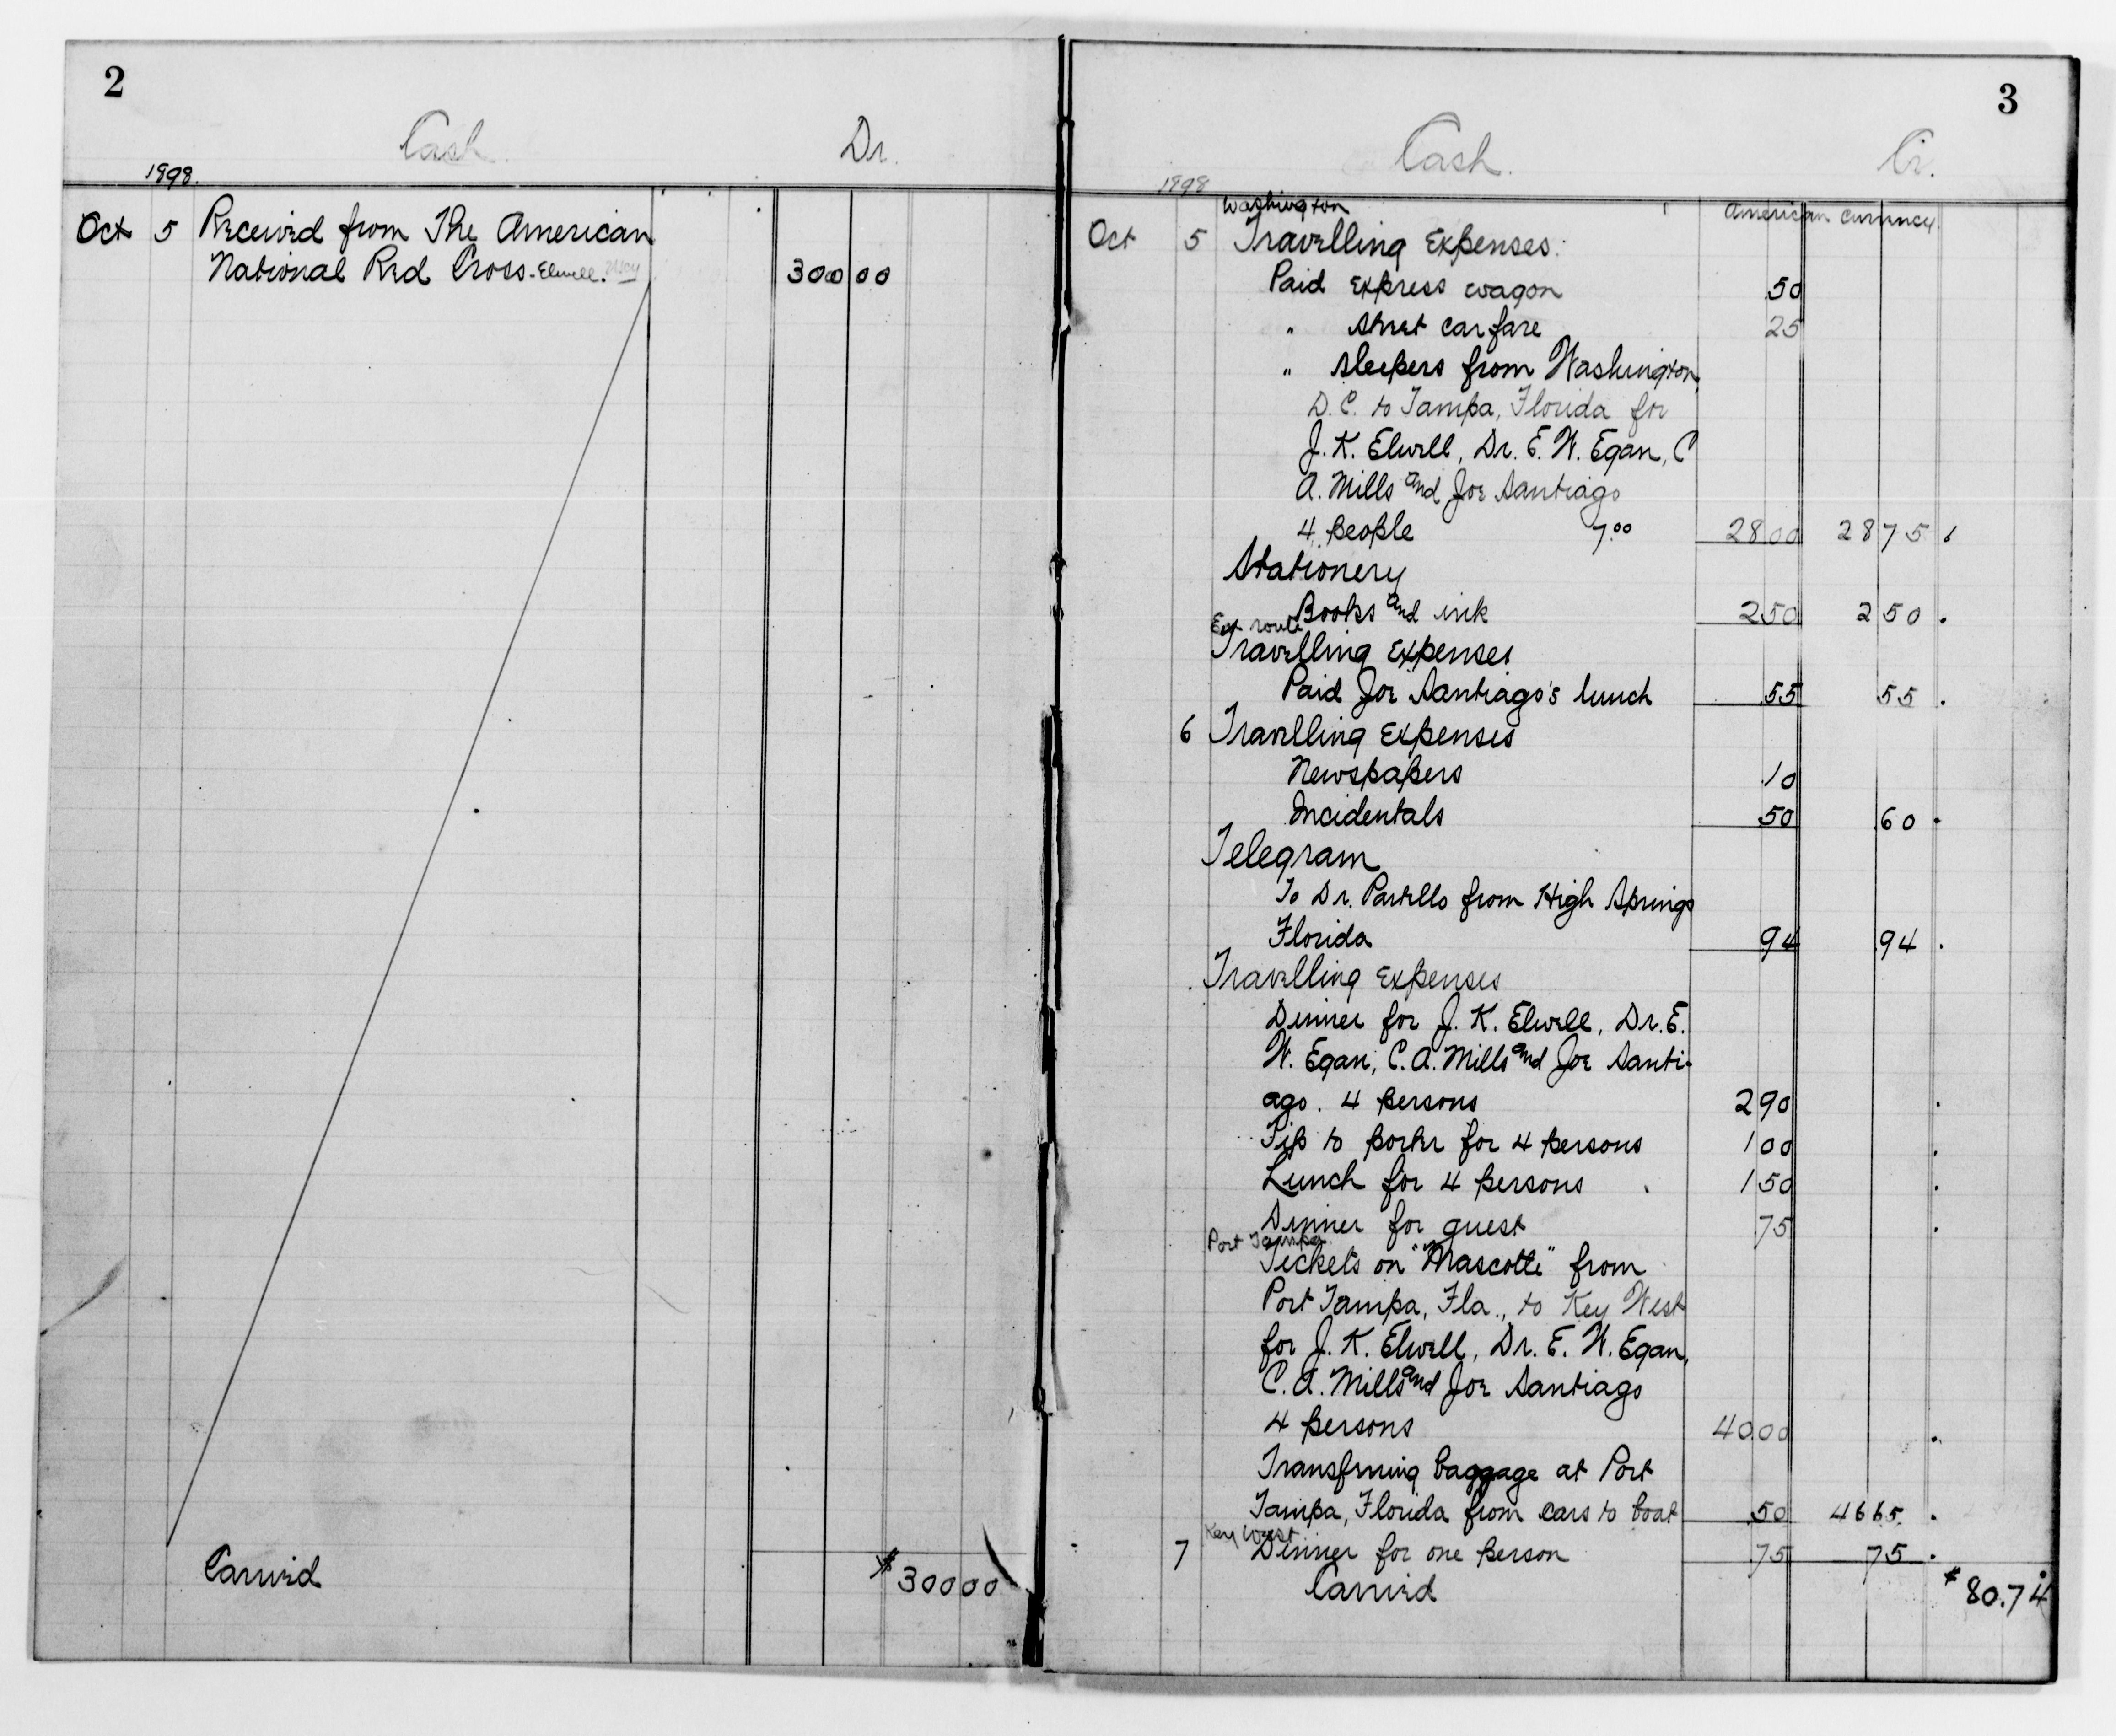 2
Cash. Dr.
1898.
Oct 5 Received from The American
National Red Cross - Elwell. 300 00
Carried $ 300 00
3
Cash. Cr.
1898
Washington American currency.
Oct 5 Travelling Expenses:
Paid express wagon .50
" street car fare 25
" sleepers from Washington,
D. C. to Tampa, Florida for
J. K. Elwell, Dr. E. W. Egan, C
A. Mills and Joe Santiago
4 people 7.00 28 00 28 75
Stationery
Books and ink 2 50 2 50 .
En route
Travelling Expenses
Paid Joe Santiago's lunch .55 55 .
6 Travelling Expenses
Newspapers .10
Incidentals 50 .60 .
Telegram
To Dr. Partello from High Springs
Florida 94 .94 .
Travelling Expenses
Dinner for J. K. Elwell, Dr. E.
W. Egan, C. A. Mills and Joe Santi-
ago. 4 persons 2 90 .
Tip to porter for 4 persons 1 00 .
Lunch for 4 persons 1 50 .
Dinner for guest 75 .
Port Tampa
Tickets on "Mascotte" from
Port Tampa, Fla., to Key West
for J. K. Elwell, Dr. E. W. Egan,
C. A. Mills and Joe Santiago
4 persons 40 00 .
Transfrring baggage at Port
Tampa, Florida from cars to boat .50 46 65 .
Key West
7 Dinner for one person 75 75 .
Carried $ 80.74